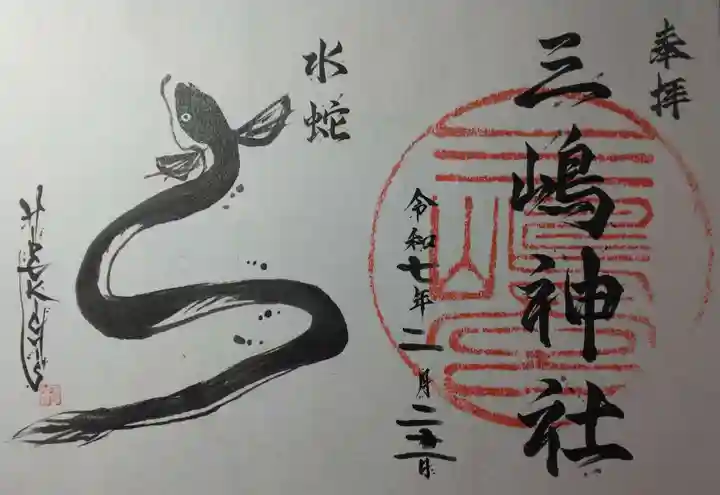 奉拝
三嶋神社
令和七年二月二十五日
水蛇